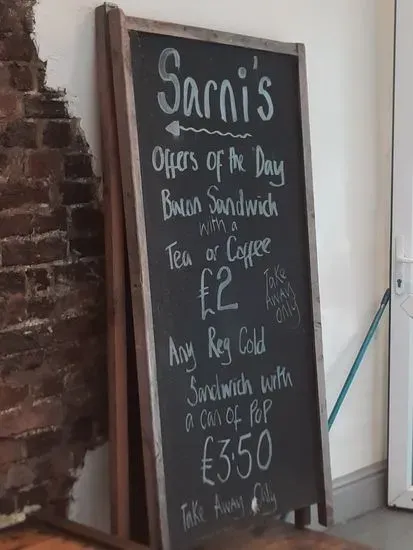 Sarni's
Offers of the Day
Bacon Sandwich
with a
Tea or Coffee
£2
Take
Away
only
Any Reg Cold
Sandwich with
a can of Pop
£3.50
Take Away Only